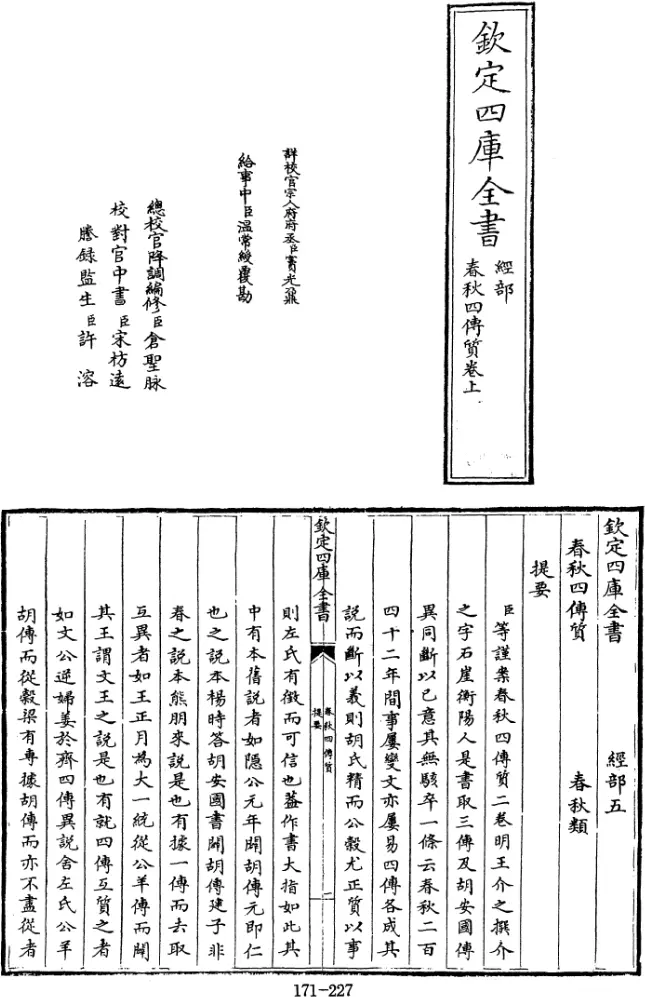 欽定四庫全書
經部
春秋四傳質卷上
詳校官宗人府府丞臣竇光鼐
給事中臣溫常綬覆勘
總校官降調編修臣倉聖脉
校對官中書臣宋枋遠
謄録監生臣許溶
欽定四庫全書 經部五
春秋四傳質 春秋類
提要
臣等謹案春秋四傳質二卷明王介之撰介
之字石崖衡陽人是書取三傳及胡安國傳
異同斷以己意其無駭卒一條云春秋二百
四十二年間事屢變文亦屢易四傳各成其
說而斷以義則胡氏精而公穀尤正質以事
欽定四庫全書
春秋四傳質
提要
二
則左氏有徵而可信也蓋作書大指如此其
中有本舊說者如隠公元年闢胡傳元即仁
也之說本楊時答胡安國書闢胡傳建子非
春之說本熊朋來說是也有據一傳而去取
互異者如王正月為大一統從公羊傳而闢
其王謂文王之說是也有就四傳互質之者
如文公逆婦姜於齊四傳異說舍左氏公羊
胡傳而從穀梁有專據胡傳而亦不盡從者
171-227